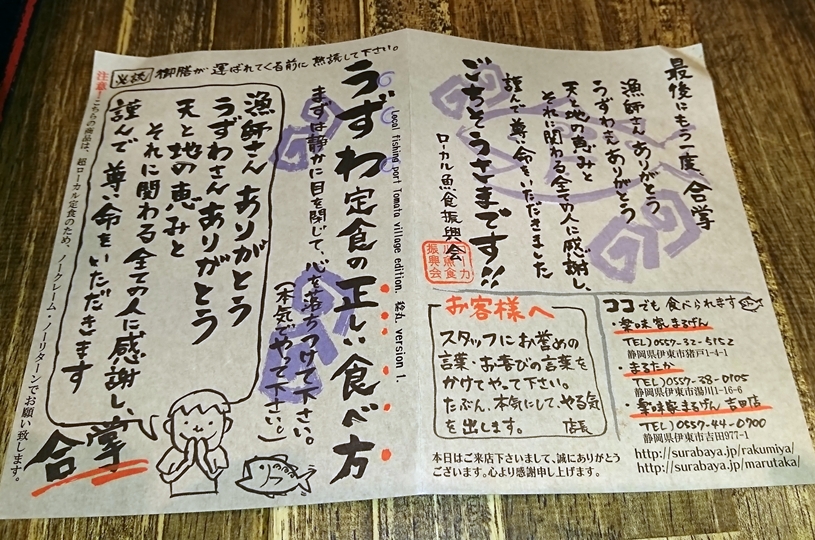 必読 御膳が運ばれてくる前に熟読して下さい。
うずわ定食の正しい食べ方
Local fishing port Tomato village edition. 絵丸 version 1.
まずは静かに目を閉じて、心を落ちつけて下さい。
(本気でやって下さい。)
漁師さんありがとう
うずわさんありがとう
天と地の恵みと
それに関わる全ての人に感謝し、
謹んで尊い命をいただきます
合掌
注意!こちらの商品は、超ローカル定食のため、ノークレーム・ノーリターンでお願い致します。
最後にもう一度、合掌
漁師さんありがとう
うずわさんありがとう
天と地の恵みと
それに関わる全ての人に感謝し、
謹んで尊い命をいただきました
ごちそうさまです!!
ローカル魚食振興会
ローカル
魚食
振興会
お客様へ
スタッフにお誉めの
言葉・お喜びの言葉を
かけてやって下さい。
たぶん、本気にして、やる気
を出します。 店長
本日はご来店下さいまして、誠にありがとう
ございます。心より感謝申し上げます。
ココでも食べられます
・楽味家まるげん
TEL)0557-32-5152
静岡県伊東市猪戸1-4-1
・まるたか
TEL)0557-38-0105
静岡県伊東市湯川1-16-6
・楽味家まるげん 吉田店
TEL)0557-44-0700
静岡県伊東市吉田977-1
http://surabaya.jp/rakumiya/
http://surabaya.jp/marutaka/